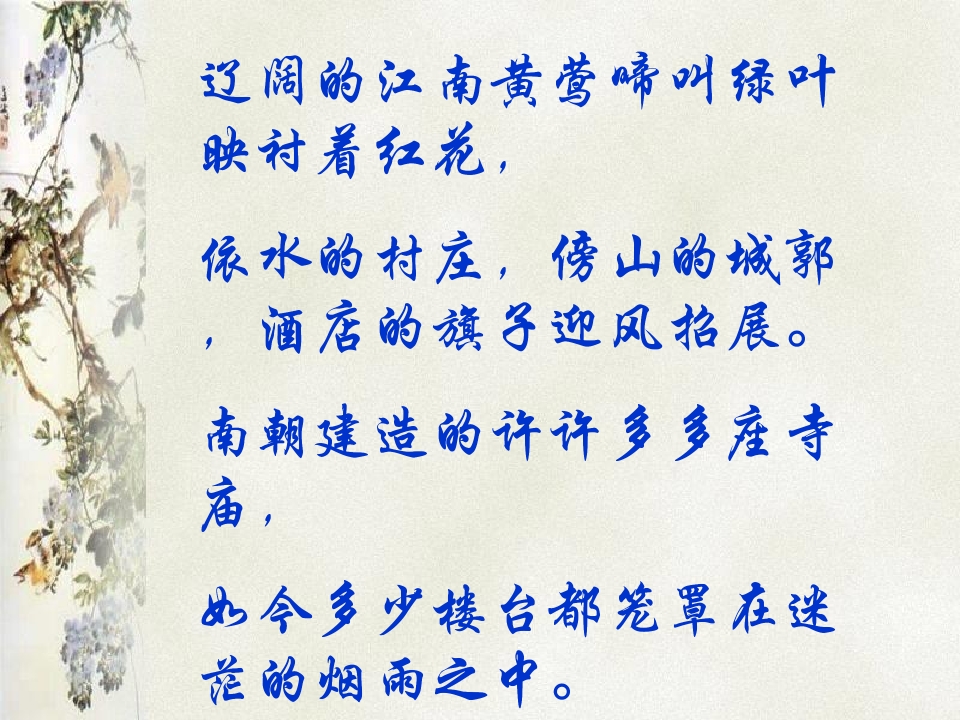 辽阔的江南黄莺啼叫绿叶
映衬着红花，
依水的村庄，傍山的城郭
，酒店的旗子迎风招展。
南朝建造的许许多多座寺
庙，
如今多少楼台都笼罩在迷
茫的烟雨之中。